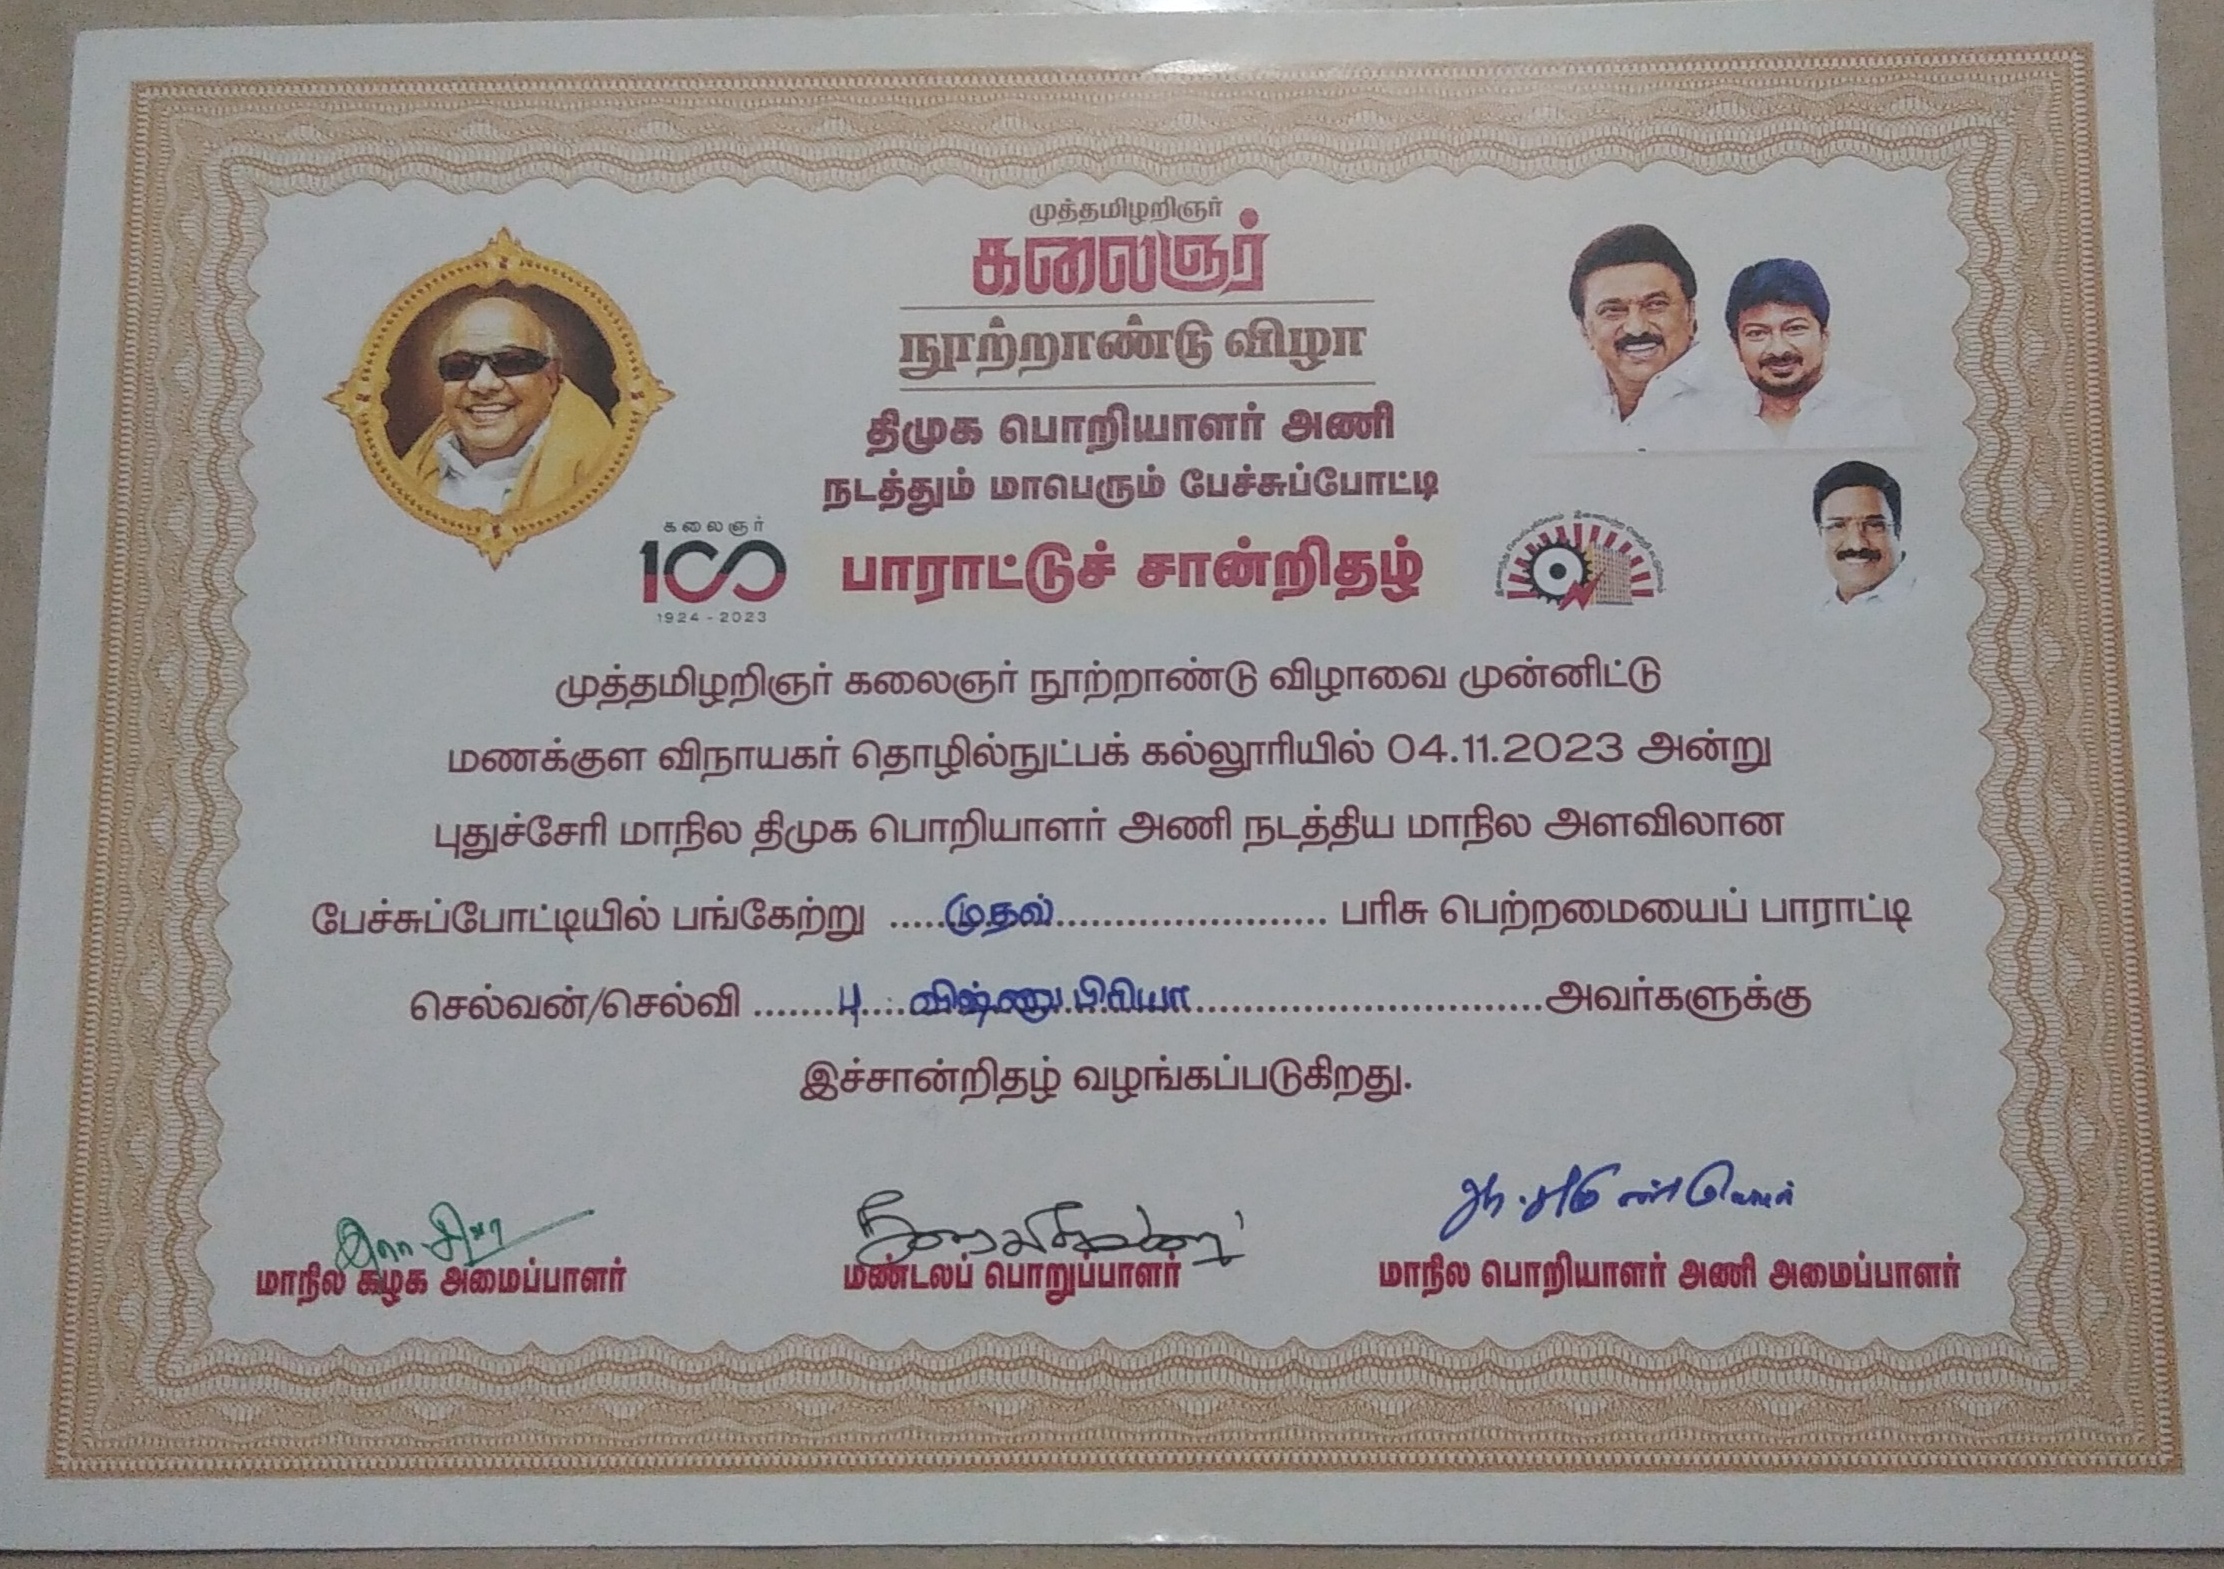 முத்தமிழறிஞர்
கலைஞர்
நூற்றாண்டு விழா
திமுக பொறியாளர் அணி
நடத்தும் மாபெரும் பேச்சுப்போட்டி
கலைஞர்
100
1924 - 2023
பாராட்டுச் சான்றிதழ்
முத்தமிழறிஞர் கலைஞர் நூற்றாண்டு விழாவை முன்னிட்டு
மணக்குள விநாயகர் தொழில்நுட்பக் கல்லூரியில் 04.11.2023 அன்று
புதுச்சேரி மாநில திமுக பொறியாளர் அணி நடத்திய மாநில அளவிலான
பேச்சுப்போட்டியில் பங்கேற்று .....முதல்....................... பரிசு பெற்றமையைப் பாராட்டி
செல்வன்/செல்வி .......பு. விஷ்ணு பிரியா.............................அவர்களுக்கு
இச்சான்றிதழ் வழங்கப்படுகிறது.
மாநில கழக அமைப்பாளர்
மண்டலப் பொறுப்பாளர்
மாநில பொறியாளர் அணி அமைப்பாளர்